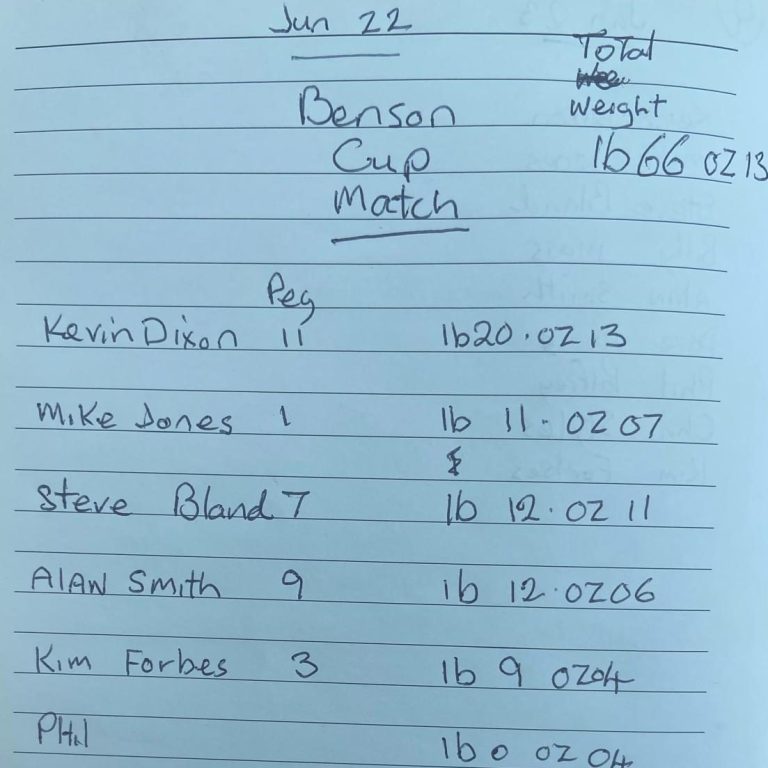 Jun 22
Total
Weight
Benson
Cup
Match
lb 66 oz 13
Peg
Kevin Dixon 11 lb20.oz 13
Mike Jones 1 lb 11.oz 07
Steve Bland 7 lb 12.oz 11
Alan Smith 9 lb 12.oz06
Kim Forbes 3 lb 9 oz04
Phil lb 0 oz 04